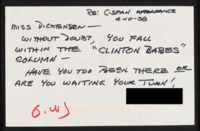 RE: C-SPAN APPEARANCE
4-10-98
MISS DICKENSEN -
WITHOUT DOUBT, YOU FALL
WITHIN THE "CLINTON BABES"
COLUMN -
HAVE YOU TOO BEEN THERE OR
ARE YOU WAITING YOUR TURN!